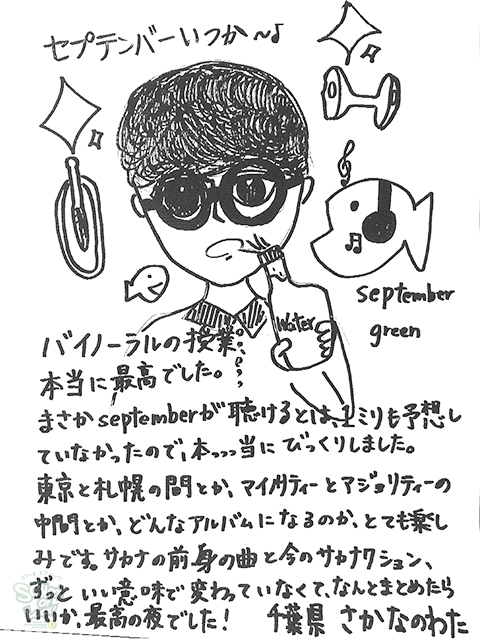 セプテンバーいつか〜♪
september
green
Water
バイノーラルの授業、
本当に最高でした。
まさかseptemberが聴けるとは、1ミリも予想し
ていなかったので、本っっっ当にびっくりしました。
東京と札幌の間とか、マイノリティーとマジョリティーの
中間とか、どんなアルバムになるのか、とても楽し
みです。サカナの前身の曲と今のサカナクション、
ずっといい意味で変わっていなくて、なんとまとめたら
いいか、最高の夜でした！ 千葉県 さかなのわた